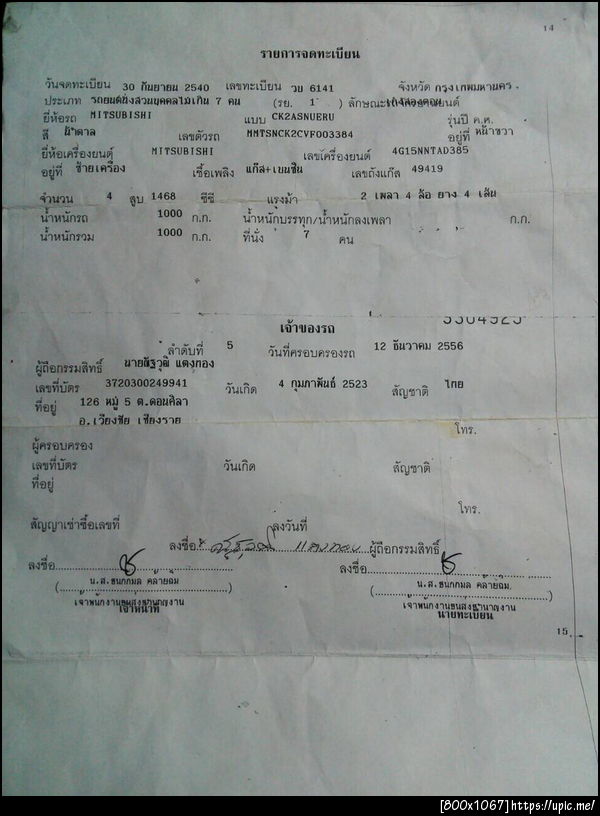 14
รายการจดทะเบียน
วันจดทะเบียน 30 กันยายน 2540 เลขทะเบียน วย 6141 จังหวัด กรุงเทพมหานคร
ประเภท รถยนต์นั่งส่วนบุคคลไม่เกิน 7 คน (รย. 1 ) ลักษณะ
ยี่ห้อรถ MITSUBISHI แบบ CK2ASNUERU รุ่นปี ค.ศ.
สี น้ำตาล เลขตัวรถ MMTSNCK2CVF003384 อยู่ที่ หน้าขวา
ยี่ห้อเครื่องยนต์ MITSUBISHI เลขเครื่องยนต์ 4G15NNTAD385
อยู่ที่ ซ้ายเครื่อง เชื้อเพลิง แก๊ส+เบนซิน เลขถังแก๊ส 49419
จำนวน 4 สูบ 1468 ซีซี แรงม้า 2 เพลา 4 ล้อ ยาง 4 เส้น
น้ำหนักรถ 1000 ก.ก. น้ำหนักบรรทุก/น้ำหนักลงเพลา ก.ก.
น้ำหนักรวม 1000 ก.ก. ที่นั่ง 7 คน
เจ้าของรถ
ลำดับที่ 5 วันที่ครอบครองรถ 12 ธันวาคม 2556
ผู้ถือกรรมสิทธิ์ นายณัฐวุฒิ แตงทอง
เลขที่บัตร 3720300249941 วันเกิด 4 กุมภาพันธ์ 2523 สัญชาติ ไทย
ที่อยู่ 126 หมู่ 5 ต.ดอนศิลา
อ.เวียงชัย เชียงราย
โทร.
ผู้ครอบครอง
เลขที่บัตร วันเกิด สัญชาติ
ที่อยู่
โทร.
สัญญาเช่าซื้อเลขที่ ลงวันที่
ลงชื่อ ผู้ถือกรรมสิทธิ์
ลงชื่อ ลงชื่อ
(น.ส.ชนกกมล คล้ายฉิม) (น.ส.ชนกกมล คล้ายฉิม)
เจ้าพนักงานขนส่งชำนาญงาน เจ้าพนักงานขนส่งชำนาญงาน
เจ้าหน้าที่ นายทะเบียน
15
[800x1067]https://upic.me/